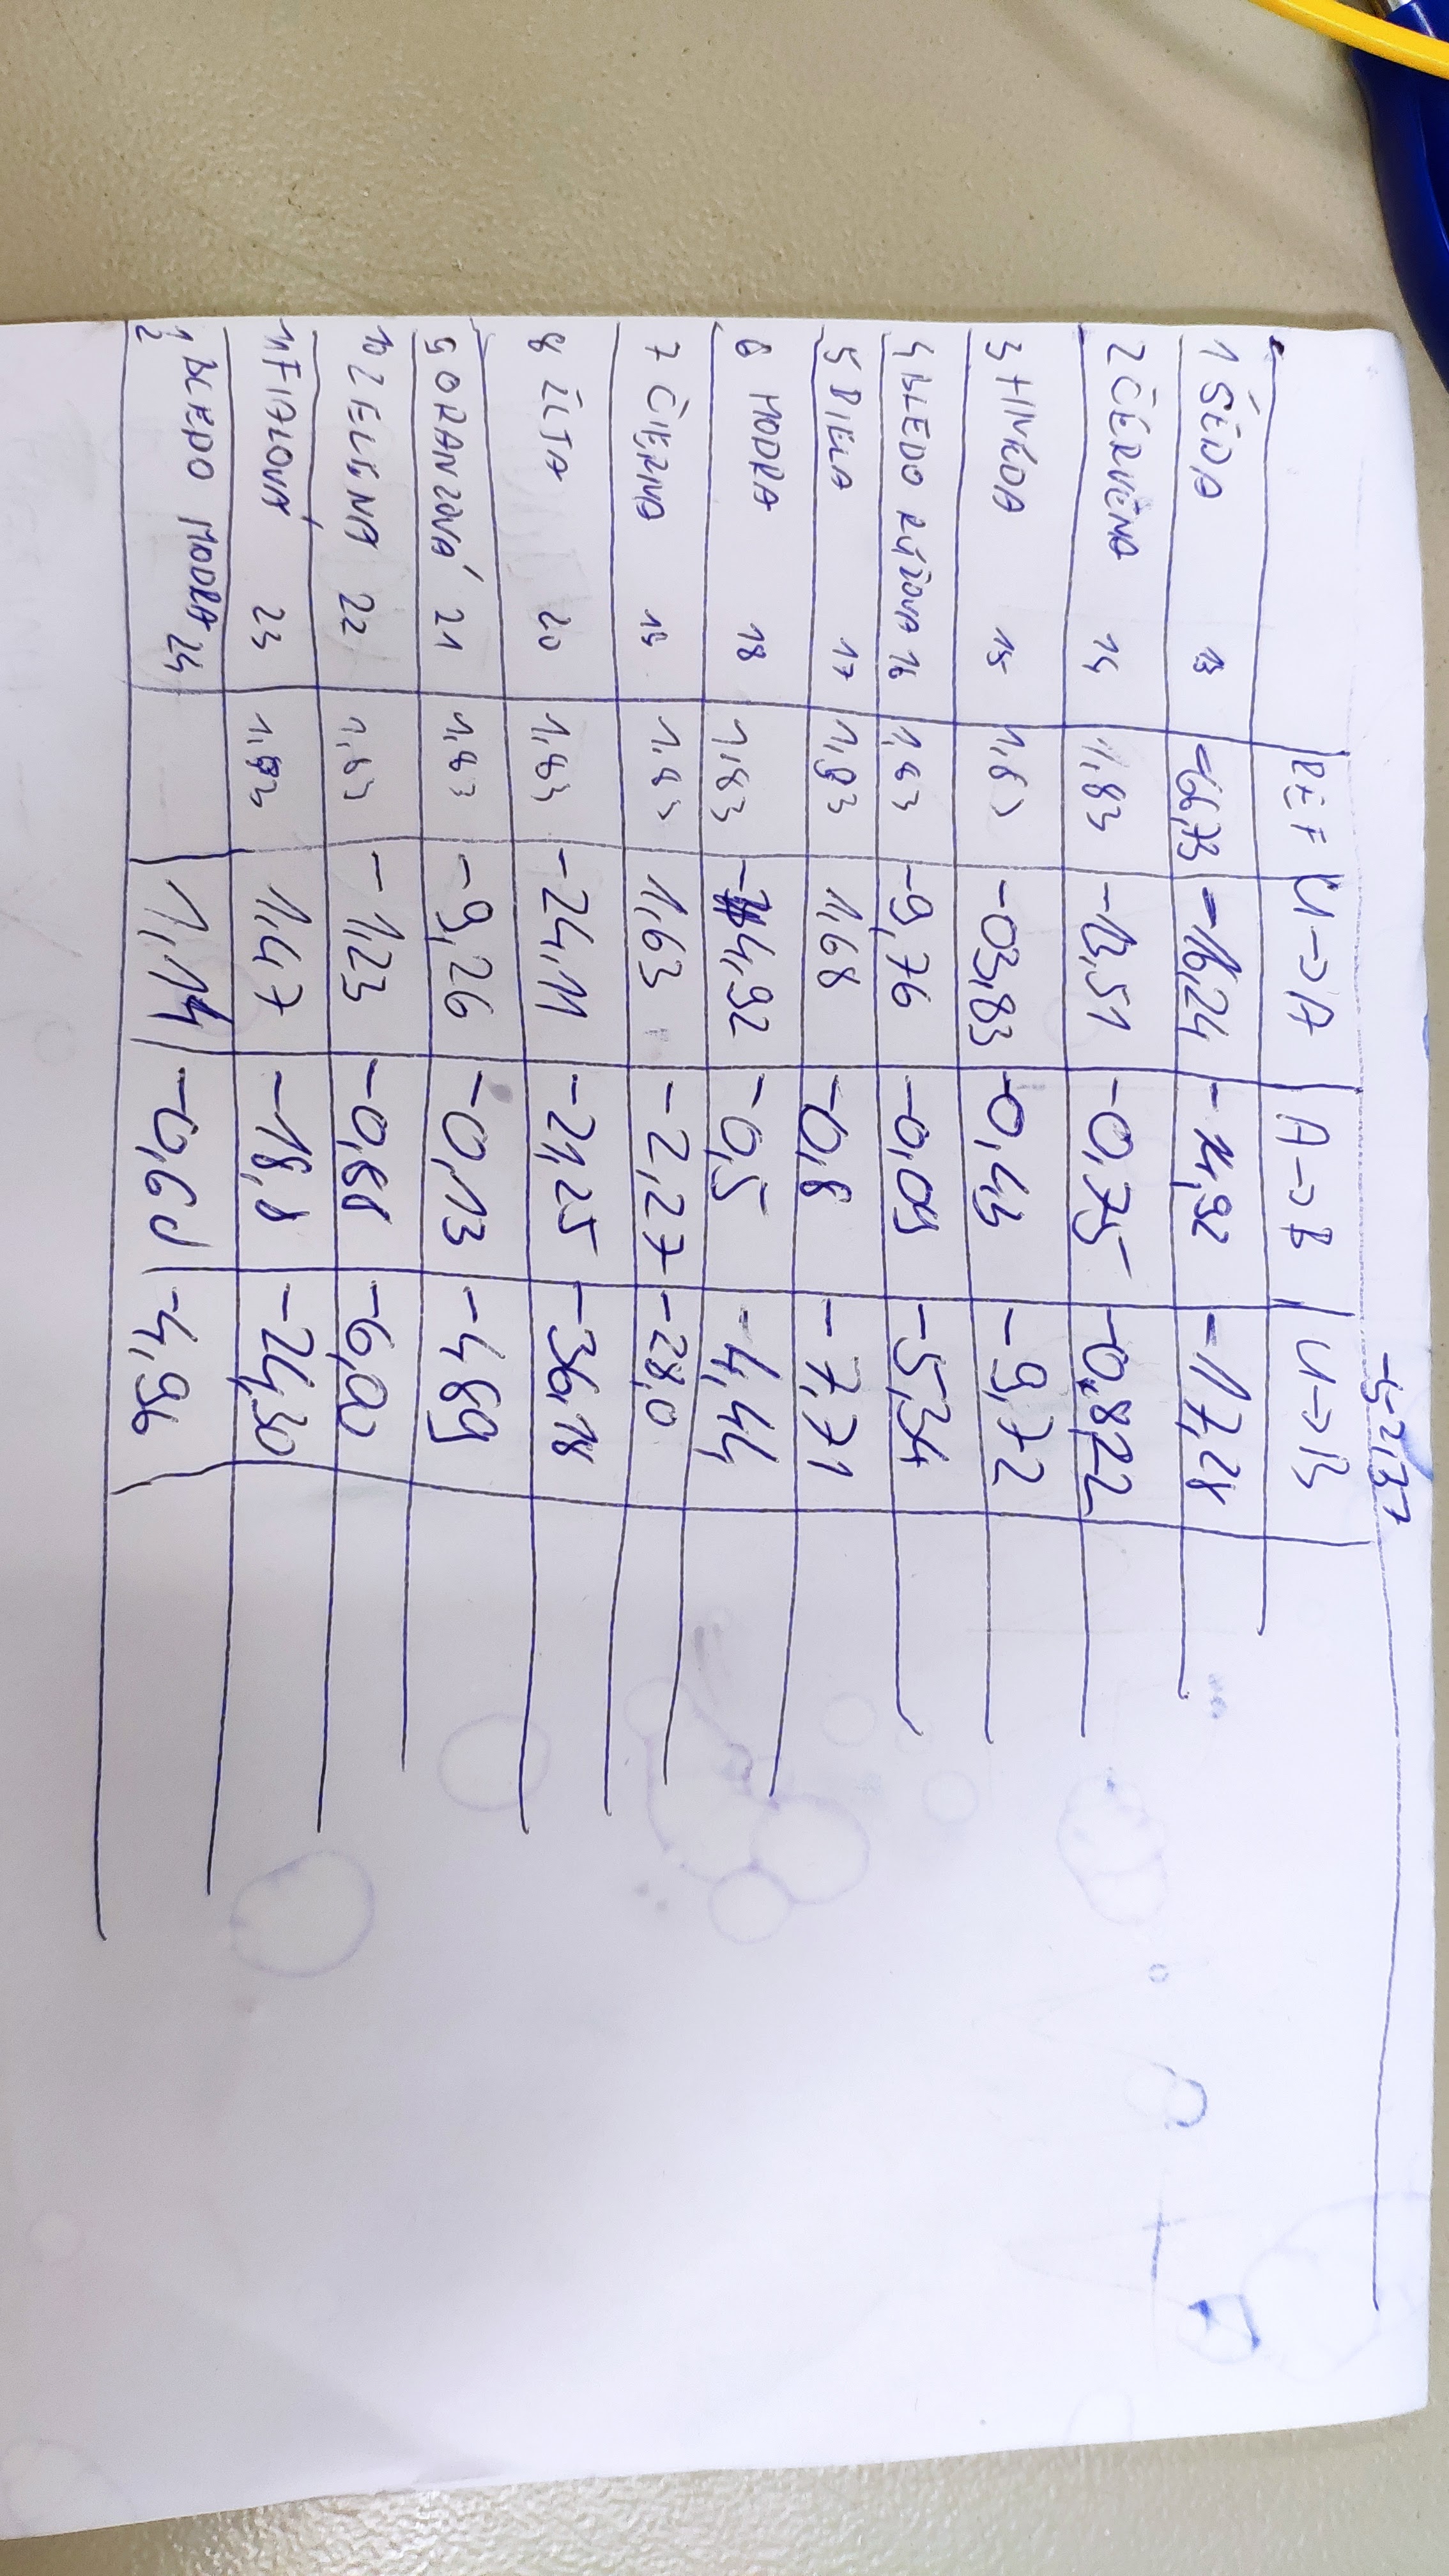 -52,37
REF U→A A→B U→B
1 ŠEDA 13 -66,73 -16,24 -11,92 -17,28
2 ČERVENA 14 1,83 -13,51 -0,75 -0,822
3 HNEDA 15 1,83 -03,83 -0,44 -9,72
4 BLEDO RUŽOVA 16 1,83 -9,76 -0,09 -5,34
5 BIELA 17 1,83 1,68 -0,8 -7,71
6 MODRA 18 1,83 4,92 -0,5 -4,44
7 ČIERNA 19 1,83 1,63 -2,27 -28,0
8 ŽLTA 20 1,83 -24,11 -21,25 -36,18
9 ORANŽOVÁ 21 1,83 -9,26 -0,13 -4,89
10 ZELENA 22 1,83 -1,23 -0,88 -6,00
11 FIALOVÁ 23 1,83 1,47 -18,8 -24,30
12 BLEDO MODRA 24 1,14 -0,60 -4,96